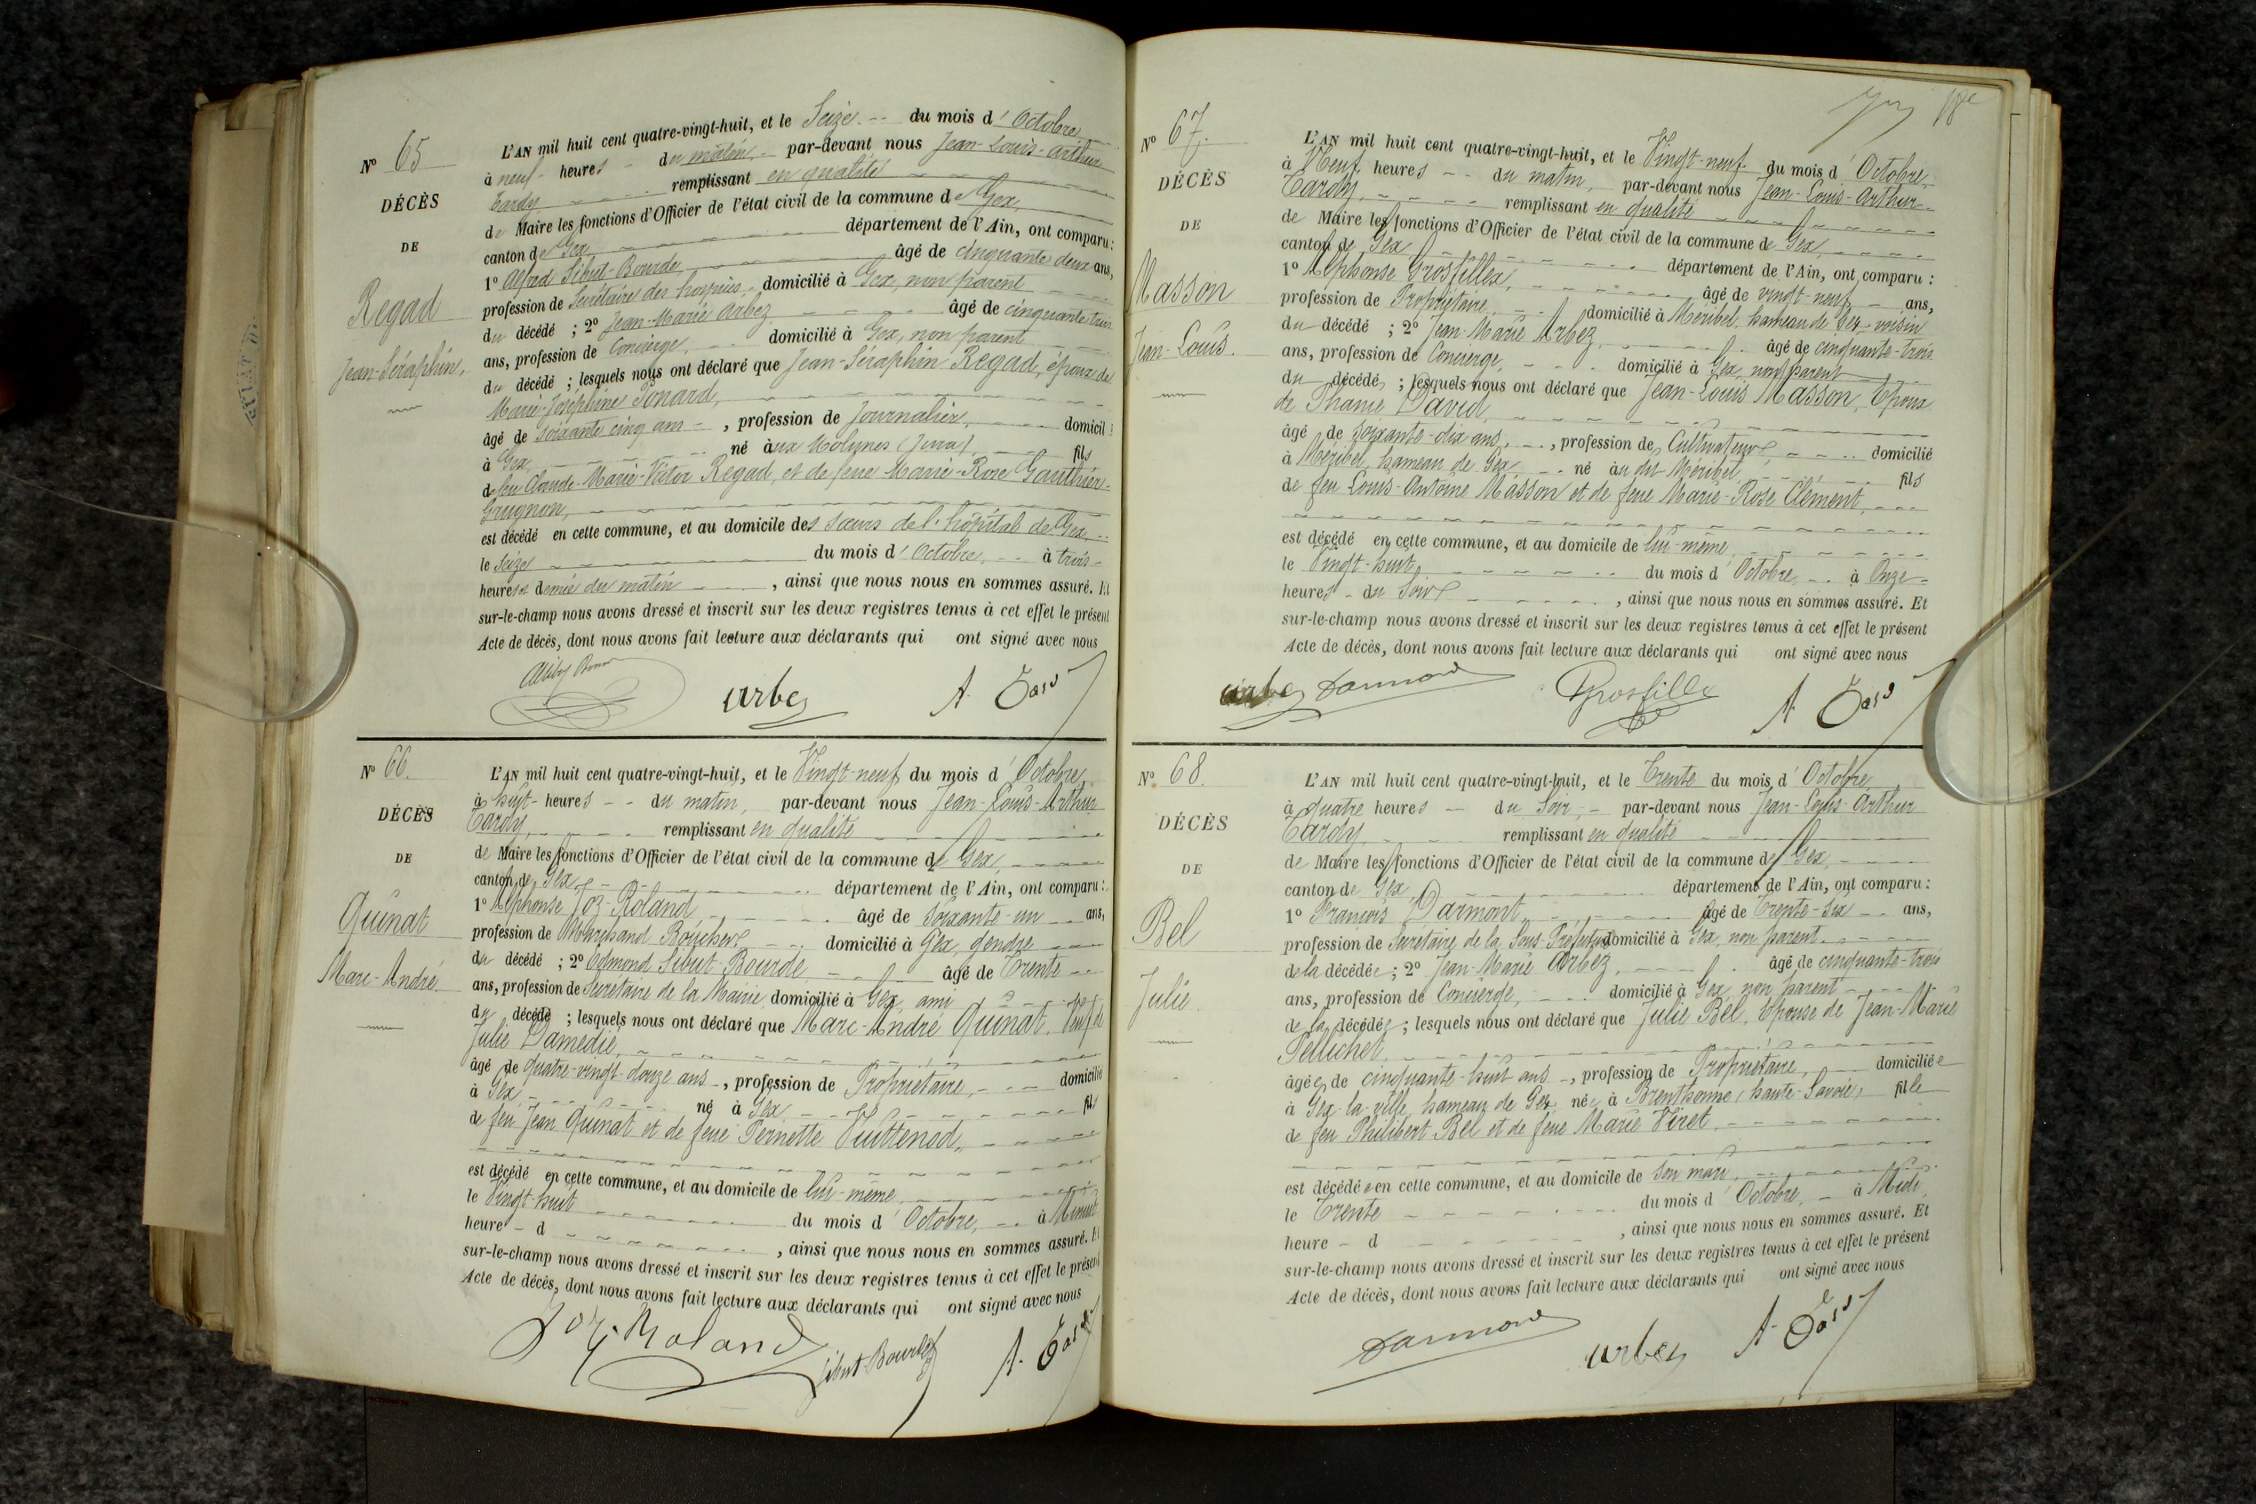 N° 65
DÉCÈS
DE
Regad
Jean-Séraphin,
L'AN mil huit cent quatre-vingt-huit, et le Seize du mois d'Octobre
à neuf heures du matin, par-devant nous Jean-Louis-Arthur
Tardy remplissant en qualité
de Maire les fonctions d'Officier de l'état civil de la commune de Gex,
canton de Gex département de l'Ain, ont comparu :
1° Alfred Sibut-Bourde âgé de cinquante deux ans,
profession de Secrétaire des hospices, domicilié à Gex, non parent
du décédé ; 2° Jean-Marie Arbez âgé de cinquante trois
ans, profession de Concierge, domicilié à Gex, non parent
du décédé ; lesquels nous ont déclaré que Jean-Séraphin Regad, époux de
Marie-Joséphine Ponard,
âgé de soixante cinq ans, profession de Journalier, domicil
à Gex, né aux Molunes (Jura), fils
de feu Claude-Marie-Victor Regad, et de feue Marie-Rose Gauthier-
Grugnon,
est décédé en cette commune, et au domicile des sœurs de l'hôpital de Gex
le seize du mois d'Octobre, à trois
heures demie du matin, ainsi que nous nous en sommes assuré. Et
sur-le-champ nous avons dressé et inscrit sur les deux registres tenus à cet effet le présent
Acte de décès, dont nous avons fait lecture aux déclarants qui ont signé avec nous
Arbez A. Tardy
N° 66.
DÉCÈS
DE
Quinat
Marc-André
L'AN mil huit cent quatre-vingt-huit, et le Vingt-neuf du mois d'Octobre,
à huit heures du matin, par-devant nous Jean-Louis-Arthur
Tardy, remplissant en qualité
de Maire les fonctions d'Officier de l'état civil de la commune de Gex,
canton de Gex département de l'Ain, ont comparu :
1° Alphonse Joz-Roland, âgé de Soixante-un ans,
profession de Marchand Boucher domicilié à Gex, gendre
du décédé ; 2° Edmond Sibut-Bourde âgé de Trente
ans, profession de Secrétaire de la Mairie, domicilié à Gex, ami
du décédé ; lesquels nous ont déclaré que Marc-André Quinat, Veuf de
Julie Damedie,
âgé de quatre-vingt-douze ans, profession de Propriétaire, domicilié
à Gex, né à Gex fils
de feu Jean Quinat et de feue Pernette Vuittenad,
est décédé en cette commune, et au domicile de lui-même,
le Vingt-huit du mois d'Octobre, à Minuit
heure d , ainsi que nous nous en sommes assuré. Et
sur-le-champ nous avons dressé et inscrit sur les deux registres tenus à cet effet le présent
Acte de décès, dont nous avons fait lecture aux déclarants qui ont signé avec nous
Joz-Roland Sibut-Bourde A. Tardy
18e
N° 67.
DÉCÈS
DE
Masson
Jean-Louis.
L'AN mil huit cent quatre-vingt-huit, et le Vingt-neuf du mois d'Octobre,
à Neuf heures du matin, par-devant nous Jean-Louis-Arthur
Tardy, remplissant en qualité
de Maire les fonctions d'Officier de l'état civil de la commune de Gex,
canton de Gex département de l'Ain, ont comparu :
1° Alphonse Grosfillex, âgé de vingt-neuf ans,
profession de Propriétaire, domicilié à Méribel, hameau de Gex, voisin
du décédé ; 2° Jean-Marie Arbez, âgé de cinquante-trois
ans, profession de Concierge, domicilié à Gex, non parent
du décédé, ; lesquels nous ont déclaré que Jean-Louis Masson, Epoux
de Phanie David,
âgé de soixante-dix ans, profession de Cultivateur, domicilié
à Méribel, hameau de Gex, né au dit Méribel fils
de feu Louis-Antoine Masson et de feue Marie-Rose Clément,
est décédé en cette commune, et au domicile de lui-même,
le Vingt-huit, du mois d'Octobre, à Onze
heures du Soir, ainsi que nous nous en sommes assuré. Et
sur-le-champ nous avons dressé et inscrit sur les deux registres tenus à cet effet le présent
Acte de décès, dont nous avons fait lecture aux déclarants qui ont signé avec nous
Arbez Grosfillex A. Tardy
N° 68
DÉCÈS
DE
Bel
Julie.
L'AN mil huit cent quatre-vingt-huit, et le Trente du mois d'Octobre
à quatre heures du Soir, par-devant nous Jean-Louis-Arthur
Tardy, remplissant en qualité
de Maire les fonctions d'Officier de l'état civil de la commune de Gex,
canton de Gex département de l'Ain, ont comparu :
1° François Darmont âgé de Trente-six ans,
profession de Secrétaire de la Sous-Préfecture domicilié à Gex, non parent
de la décédée ; 2° Jean-Marie Arbez, âgé de cinquante-trois
ans, profession de Concierge, domicilié à Gex, non parent
de la décédée ; lesquels nous ont déclaré que Julie Bel, Epouse de Jean-Marie
Pellichet,
âgée de cinquante-huit ans, profession de Propriétaire, domiciliée
à Gex-la-ville, hameau de Gex, née à Brenthonne (haute-Savoie) fille
de feu Philibert Bel et de feue Marie Viret,
est décédée en cette commune, et au domicile de son mari,
le Trente du mois d'Octobre, à Midi,
heure d , ainsi que nous nous en sommes assuré. Et
sur-le-champ nous avons dressé et inscrit sur les deux registres tenus à cet effet le présent
Acte de décès, dont nous avons fait lecture aux déclarants qui ont signé avec nous
Darmont Arbez A. Tardy